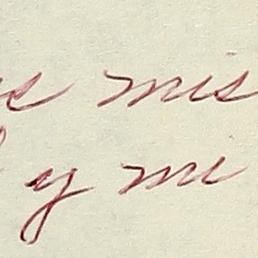 es mis
y mi